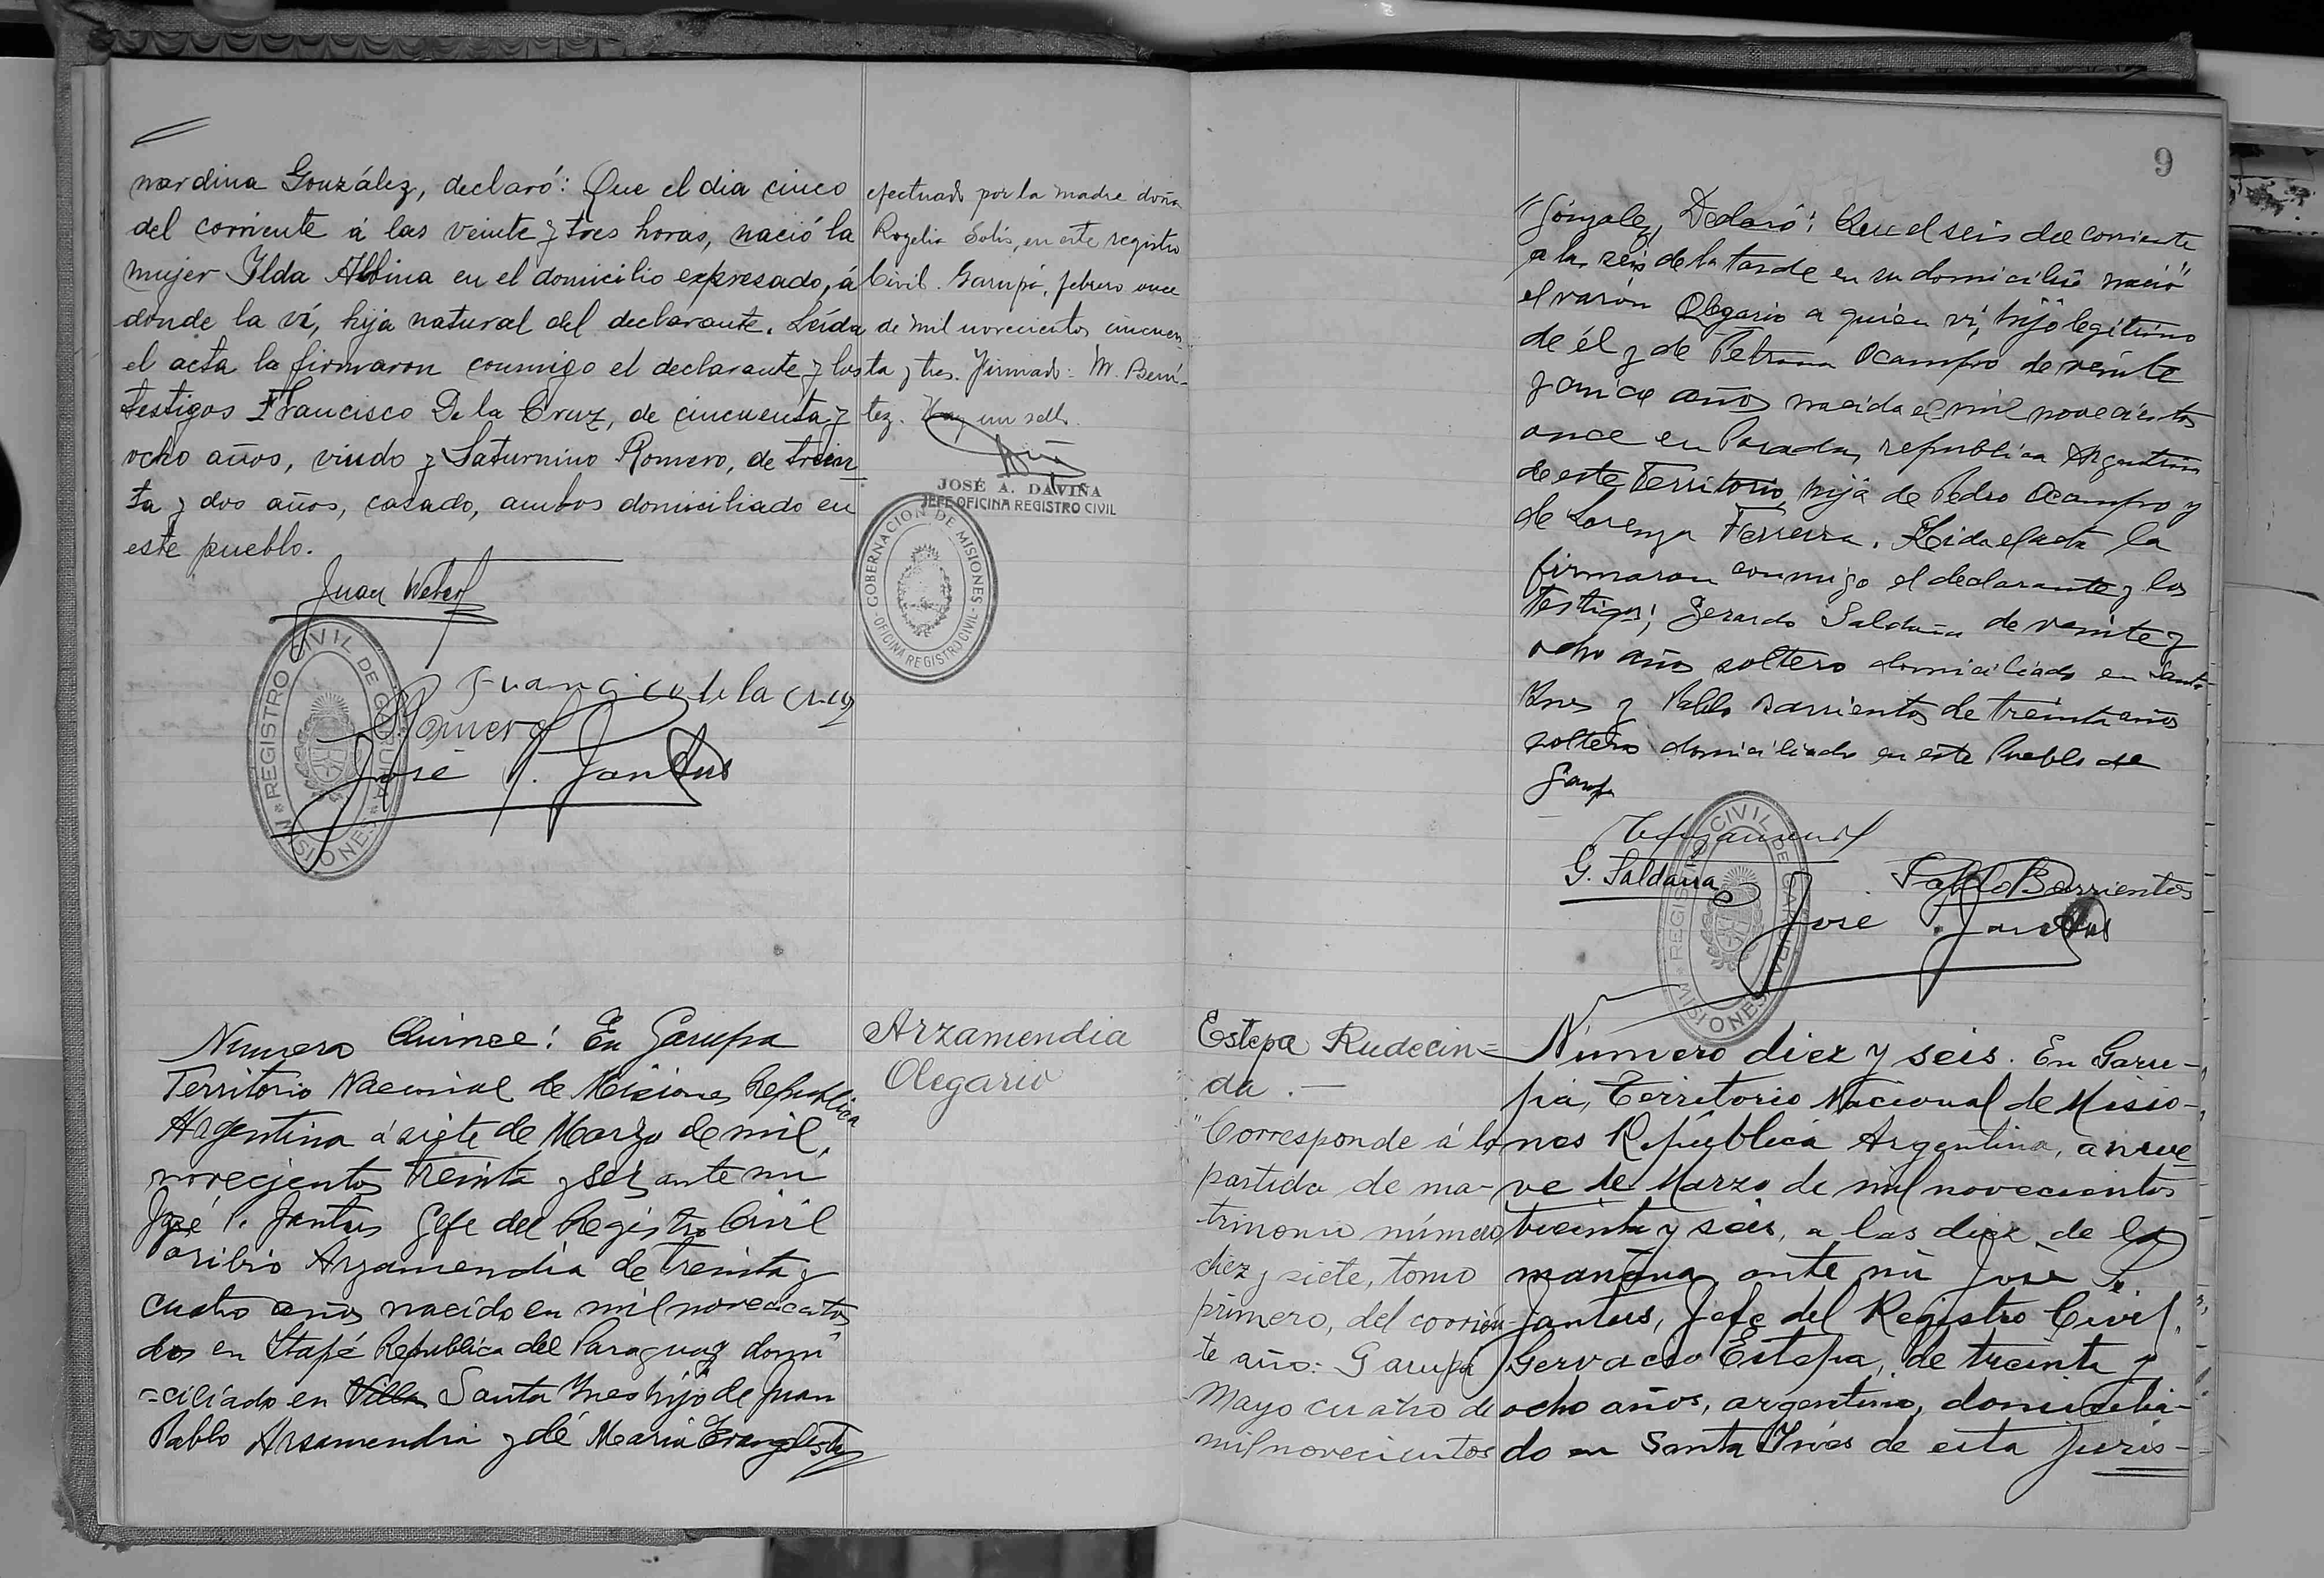 nardina González, declaró: Que el dia cinco
del corriente á las veinte y tres horas, nació la
mujer Ilda Albina en el domicilio expresado, á
donde la ví, hija natural del declarante. Leída
el acta la firmaron conmigo el declarante y los
testigos Francisco De la Cruz, de cincuenta y
ocho años, viudo y Saturnino Romero, de trein
ta y dos años, casado, ambos domiciliado en
este pueblo.
Juan Weber
Francisco de la Cruz
Romero
José P. Jantus
REGISTRO CIVIL DE GARUPA
MISIONES
efectuado por la madre doña
Rogelia Solis, en este registro
Civil. Garupá, febrero once
de mil novecientos cincuen
ta y tres. Firmado: M. Bení-
tez. Hay un sello.
JOSÉ A. DAVIÑA
JEFE OFICINA REGISTRO CIVIL
GOBERNACION DE MISIONES
OFICINA REGISTRO CIVIL
Numero Quince: En Garupa
Territorio Nacional de Misiones Republica
Argentina á siete de Marzo de mil
novecientos treinta y seis ante mi
José P. Jantus Gefe del Registro Civil
oribio Arzamendia de treinta y
cuatro años nacido en mil novecientos
dos en Itapé Republica del Paraguay domi
=ciliado en Villa Santa Ynes hijo de Juan
Pablo Arsamendia y de Maria Evangelista
Arzamendia
Olegario
9
Gonzalez, Declaró: Que el seis del corriente
a las seis de la tarde en su domicilio nació
el varón Olegario a quien vi, hijo legitimo
de él y de Petrona Ocampo de veinte
y cinco años nacida el mil novecientos
once en Posadas, republica Argentina
de este Territorio hija de Pedro Ocampo y
de Lorenza Ferreira. Leida el acta la
firmaron conmigo el declarante y los
testigos; Gerardo Saldaña de veinte y
ocho años soltero domiciliado en Santa
Ynes y Pablo Barrientos de treinta años
soltero domiciliado en este Pueblo de
Garupa
G. Saldaña
Pablo Barrientos
José P. Jantus
REGISTRO CIVIL DE GARUPA
MISIONES
Estepa Rudecin=
da.—
"Corresponde á la
partida de ma-
trimonio número
diez y siete, tomo
primero, del corrien
te año: Garupá
Mayo cuatro de
mil novecientos
Número diez y seis. En Garu-
pá, Territorio Nacional de Misio-
nes República Argentina, a nue-
ve de Marzo de mil novecientos
treinta y seis, a las diez de la
mañana, ante mi José P.
Jantus, Jefe del Registro Civil,
Gervacio Estepa, de treinta y
ocho años, argentino, domicilia-
do en Santa Inés de esta juris-